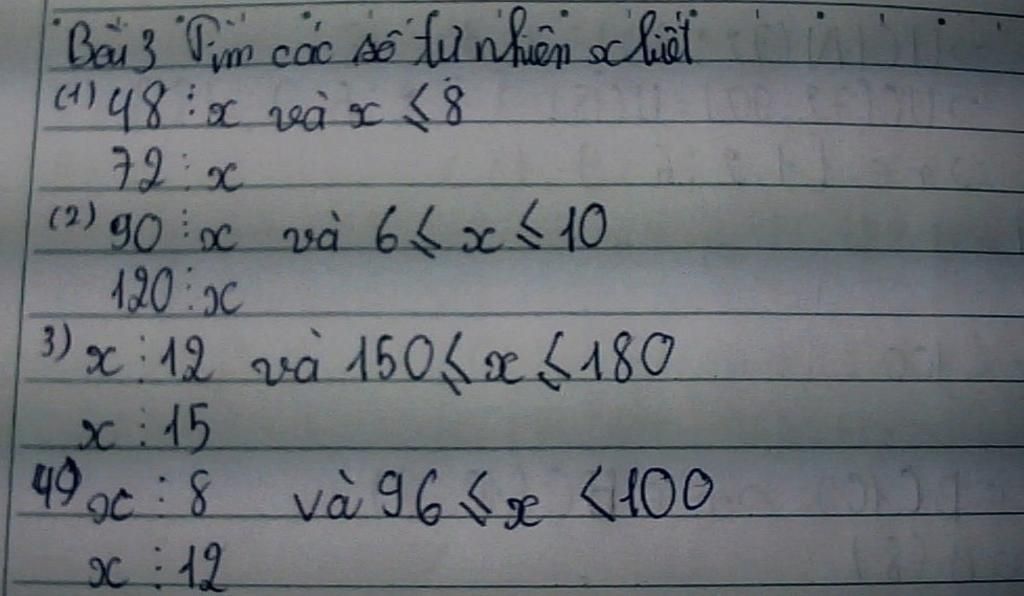 Bài 3 Tìm các số tự nhiên x biết
(1) 48 ⋮ x và x ≤ 8
72 ⋮ x
(2) 90 ⋮ x và 6 ≤ x ≤ 10
120 ⋮ x
3) x ⋮ 12 và 150 ≤ x ≤ 180
x ⋮ 15
4) x ⋮ 8 và 96 ≤ x < 100
x ⋮ 12